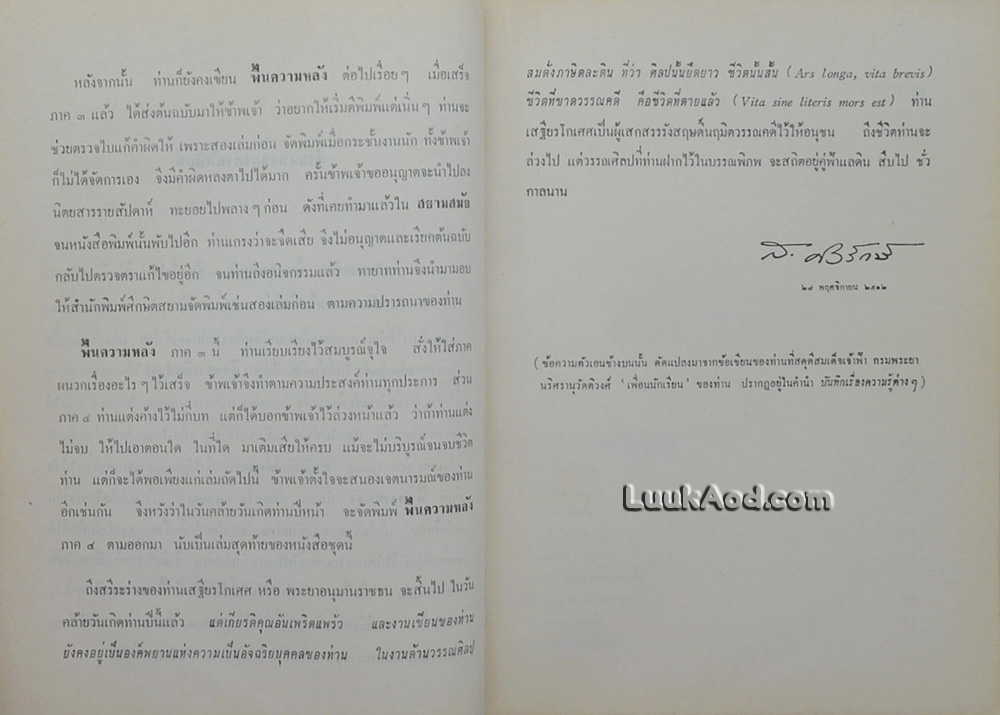 หลังจากนั้น ท่านก็ยังคงเขียน ฟื้นความหลัง ต่อไปเรื่อยๆ เมื่อเสร็จ
ภาค ๓ แล้ว ได้ส่งต้นฉบับมาให้ข้าพเจ้า ว่าอยากให้เริ่มตีพิมพ์แต่เนิ่นๆ ท่านจะ
ช่วยตรวจใบแก้คำผิดให้ เพราะสองเล่มก่อน จัดพิมพ์เมื่อกระชั้นงานนัก ทั้งข้าพเจ้า
ก็ไม่ได้จัดการเอง จึงมีคำผิดหลงตาไปได้มาก ครั้นข้าพเจ้าขออนุญาตจะนำไปลง
นิตยสารรายสัปดาห์ ทะยอยไปพลางๆ ก่อน ดังที่เคยทำมาแล้วใน สยามสมัย
จนหนังสือพิมพ์นั้นพับไปอีก ท่านเกรงว่าจะจืดเสีย จึงไม่อนุญาตและเรียกต้นฉบับ
กลับไปตรวจตราแก้ไขอยู่อีก จนท่านถึงอนิจกรรมแล้ว ทายาทท่านจึงนำมามอบ
ให้สำนักพิมพ์ศึกษิตสยามจัดพิมพ์เช่นสองเล่มก่อน ตามความปรารถนาของท่าน
ฟื้นความหลัง ภาค ๓ นี้ ท่านเรียบเรียงไว้สมบูรณ์จุใจ สั่งให้ใส่ภาค
ผนวกเรื่องอะไรๆ ไว้เสร็จ ข้าพเจ้าจึงทำตามความประสงค์ท่านทุกประการ ส่วน
ภาค ๔ ท่านแต่งค้างไว้ไม่กี่บท แต่ก็ได้บอกข้าพเจ้าไว้ล่วงหน้าแล้ว ว่าถ้าท่านแต่ง
ไม่จบ ให้ไปเอาตอนใด ในที่ใด มาเติมเสียให้ครบ แม้จะไม่บริบูรณ์จนจบชีวิต
ท่าน แต่ก็จะได้พอเพียงแก่เล่มถัดไปนี้ ข้าพเจ้าตั้งใจจะสนองเจตนารมณ์ของท่าน
อีกเช่นกัน จึงหวังว่าในวันคล้ายวันเกิดท่านปีหน้า จะจัดพิมพ์ ฟื้นความหลัง
ภาค ๔ ตามออกมา นับเป็นเล่มสุดท้ายของหนังสือชุดนี้
ถึงสรีระร่างของท่านเสฐียรโกเศศ หรือ พระยาอนุมานราชธน จะสิ้นไป ในวัน
คล้ายวันเกิดท่านปีนี้แล้ว แต่เกียรติคุณอันเพริดแพร้ว และงานเขียนของท่าน
ยังคงอยู่เป็นองค์พยานแห่งความเป็นอัจฉริยบุคคลของท่าน ในงานด้านวรรณศิลป
สมดั่งภาษิตละติน ที่ว่า ศิลปนั้นยืดยาว ชีวิตนั้นสั้น (Ars longa, vita brevis)
ชีวิตที่ขาดวรรณคดี คือชีวิตที่ตายแล้ว (Vita sine literis mors est) ท่าน
เสฐียรโกเศศเป็นผู้เสกสรรรังสฤษดิ์นฤมิตวรรณคดีไว้ให้อนุชน ถึงชีวิตท่านจะ
ล่วงไป แต่วรรณศิลปที่ท่านฝากไว้ในบรรณพิภพ จะสถิตอยู่คู่ฟ้าแลดิน สืบไป ชั่ว
กาลนาน
ส. ศิวรักษ์
๒๘ พฤศจิกายน ๒๕๑๒
(ข้อความตัวเอนข้างบนนั้น ดัดแปลงมาจากข้อเขียนของท่านที่สดุดีสมเด็จเจ้าฟ้า กรมพระยา
นริศรานุวัดติวงศ์ 'เพื่อนนักเรียน' ของท่าน ปรากฏอยู่ในคำนำ บันทึกเรื่องความรู้ต่างๆ)
LuukAod.com